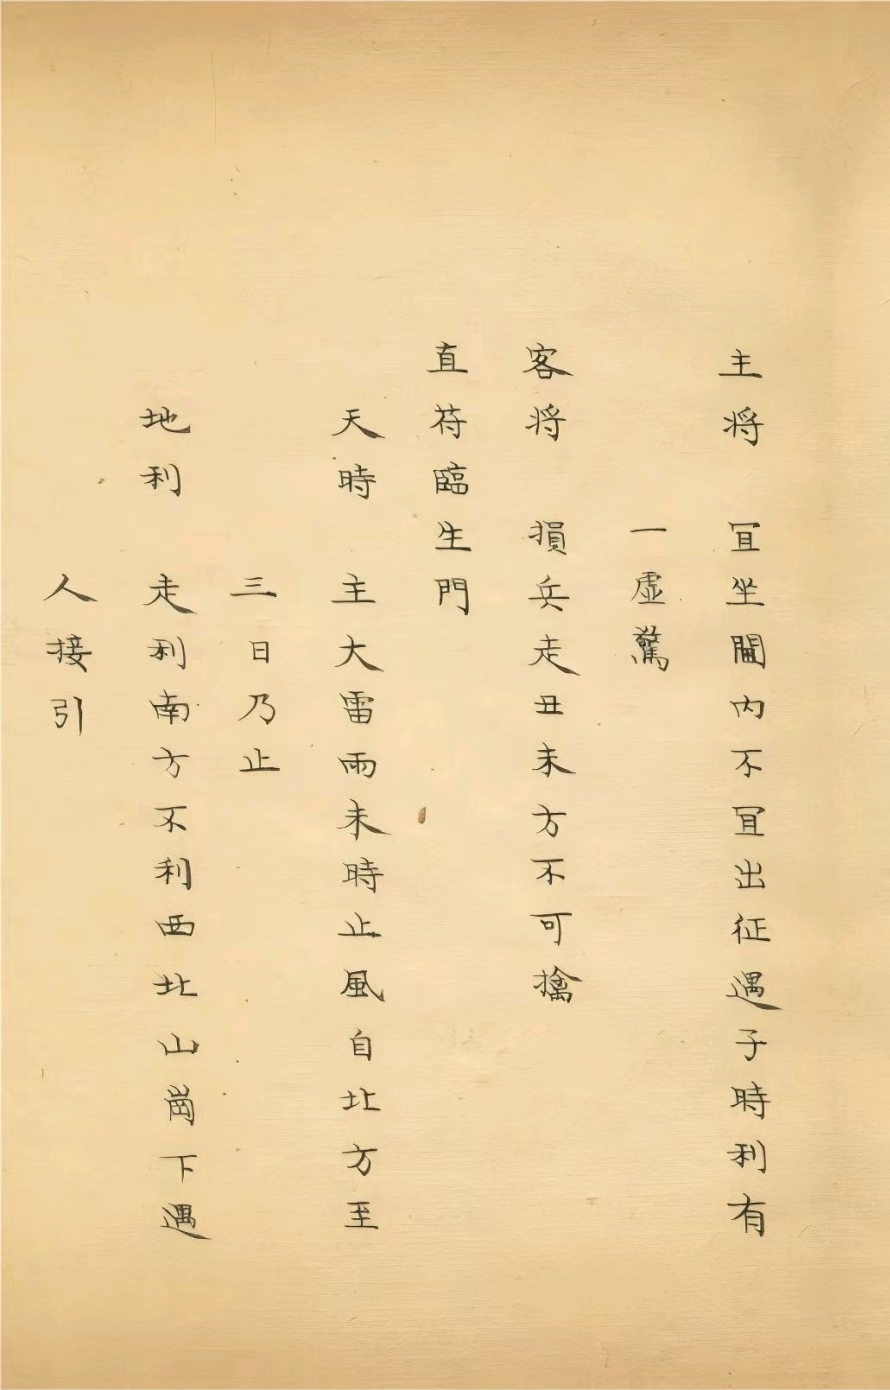 主將 冝坐闈内不冝出征遇子時利有
一虛驚
客將 損兵走丑未方不可擒
直符臨生門
天時 主大雷雨未時止風自北方至
三日乃止
地利 走利南方不利西北山崗下遇
人接引